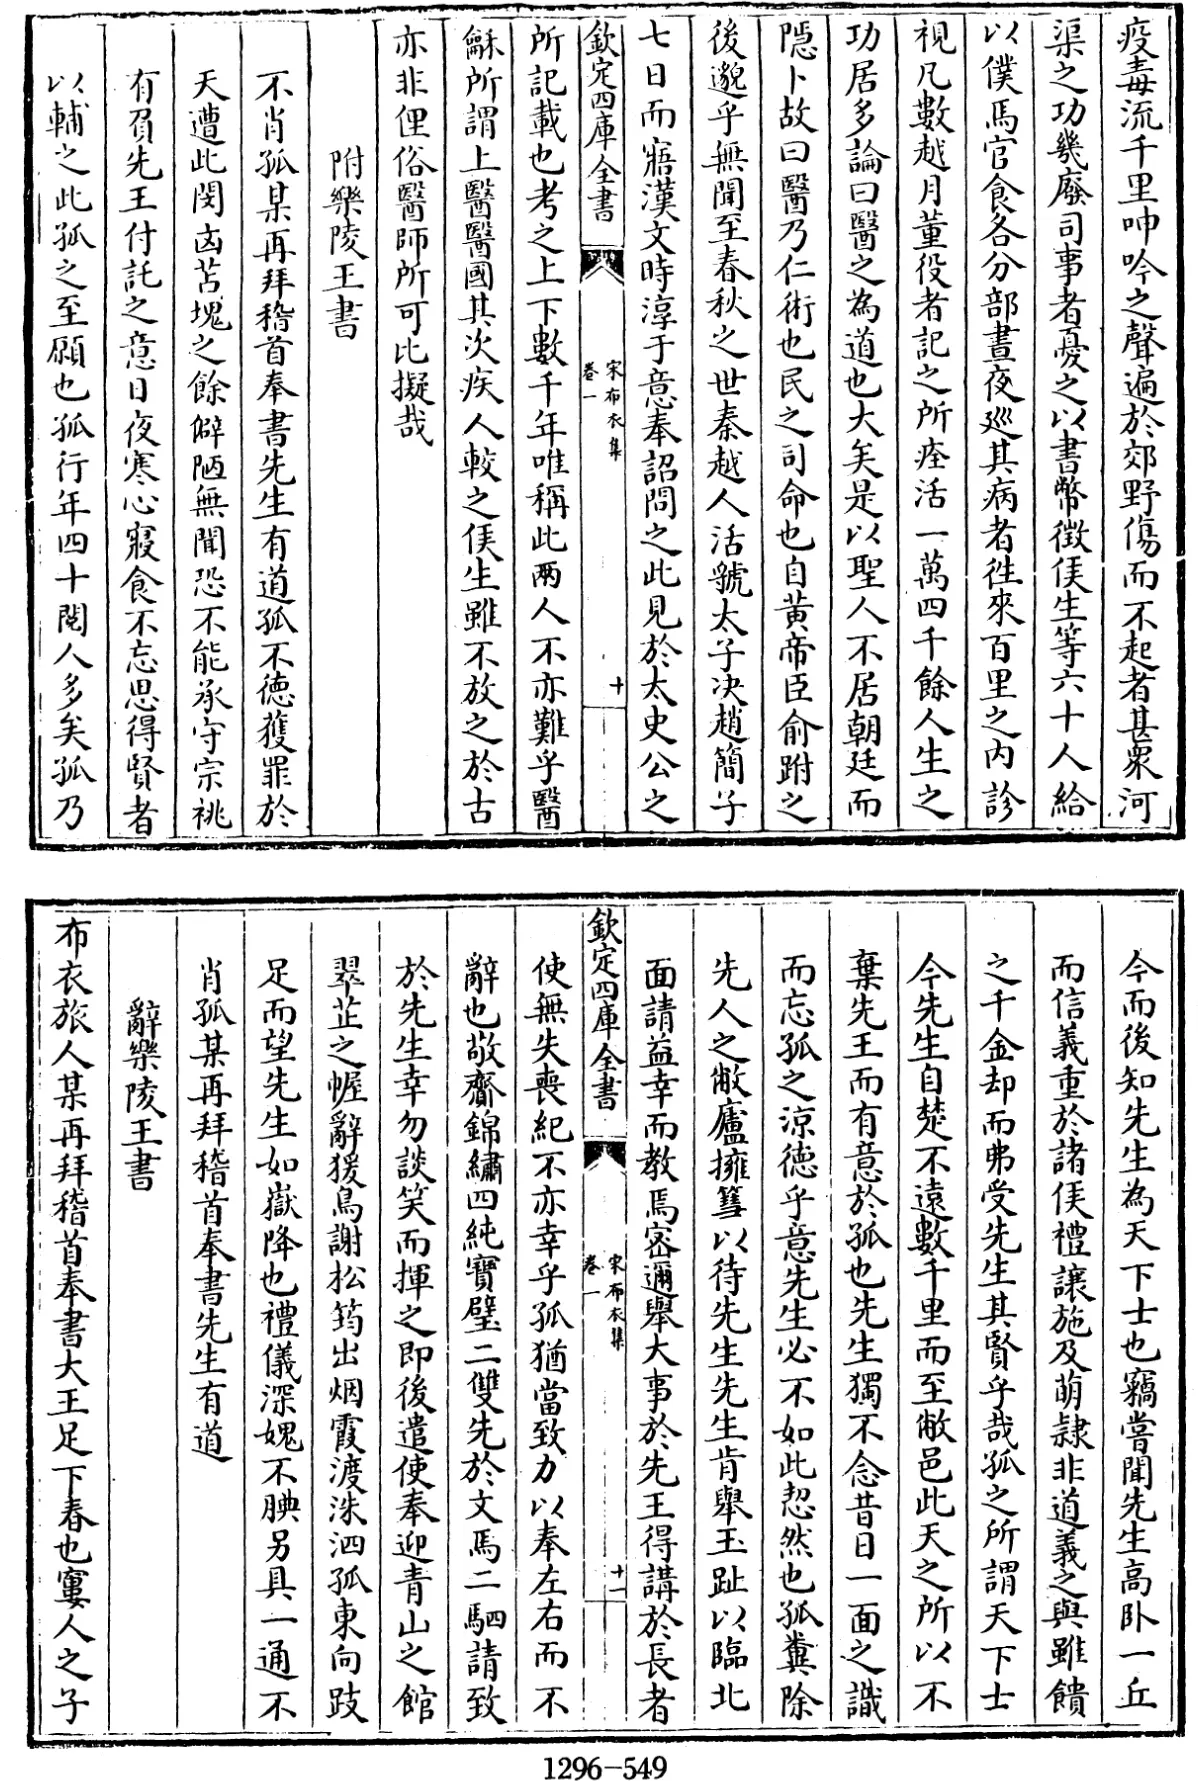 疫毒流千里呻吟之聲遍於郊野傷而不起者甚衆河
渠之功幾廢司事者憂之以書幣徵侯生等六十人給
以僕馬官食各分部晝夜巡其病者徃來百里之内診
視凡數越月董役者記之所痊活一萬四千餘人生之
功居多論曰醫之為道也大矣是以聖人不居朝廷而
隠卜故曰醫乃仁術也民之司命也自黄帝臣俞跗之
後邈乎無聞至春秋之世秦越人活虢太子决趙簡子
七日而寤漢文時淳于意奉詔問之此見於太史公之
欽定四庫全書
宋布衣集
卷一
十
所記載也考之上下數千年唯稱此兩人不亦難乎醫
龢所謂上醫醫國其次疾人較之侯生雖不放之於古
亦非俚俗醫師所可比擬哉
附樂陵王書
不肖孤某再拜稽首奉書先生有道孤不德獲罪於
天遭此閔凶苫塊之餘僻陋無聞恐不能承守宗祧
有負先王付託之意日夜寒心寢食不忘思得賢者
以輔之此孤之至願也孤行年四十閱人多矣孤乃
今而後知先生為天下士也竊嘗聞先生高卧一丘
而信義重於諸侯禮讓施及萌隷非道義之與雖饋
之千金却而弗受先生其賢乎哉孤之所謂天下士
今先生自楚不遠數千里而至敝邑此天之所以不
棄先王而有意於孤也先生獨不念昔日一面之識
而忘孤之涼德乎意先生必不如此恝然也孤糞除
先人之敝廬擁篲以待先生先生肯舉玉趾以臨北
面請益幸而教焉密邇舉大事於先王得講於長者
欽定四庫全書
宋布衣集
卷一
十一
使無失喪紀不亦幸乎孤猶當致力以奉左右而不
辭也敬齎錦繡四純寳璧二雙先於文馬二駟請致
於先生幸勿談笑而揮之即後遣使奉迎青山之館
翠芷之幄辭猨鳥謝松筠出烟霞渡洙泗孤東向跂
足而望先生如嶽降也禮儀深媿不腆另具一通不
肖孤某再拜稽首奉書先生有道
辭樂陵王書
布衣旅人某再拜稽首奉書大王足下春也窶人之子
1296-549